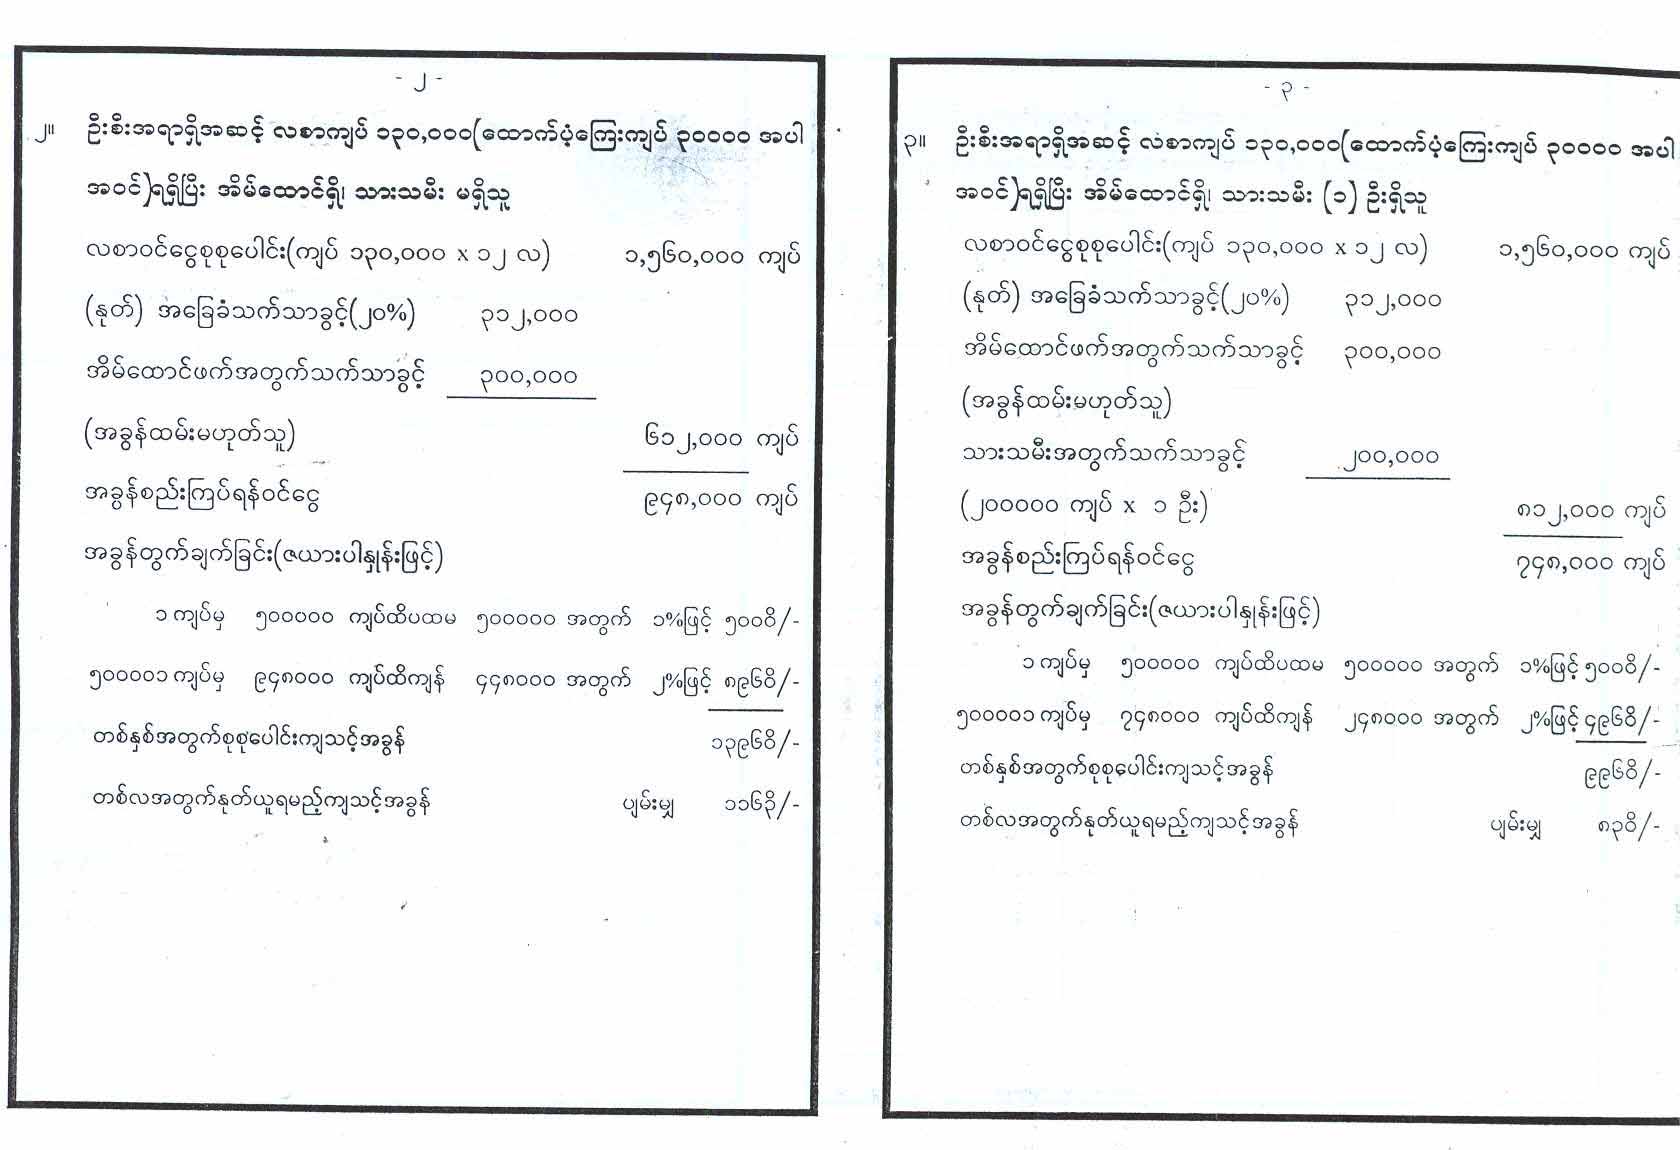 - ၂ -
၂။ ဦးစီးအရာရှိအဆင့် လစာကျပ် ၁၃၀,၀၀၀(ထောက်ပံ့ကြေးကျပ် ၃၀၀၀၀ အပါ
အဝင်)ရရှိပြီး အိမ်ထောင်ရှိ၊ သားသမီး မရှိသူ
လစာဝင်ငွေစုစုပေါင်း(ကျပ် ၁၃၀,၀၀၀ x ၁၂ လ) ၁,၅၆၀,၀၀၀ ကျပ်
(နုတ်) အခြေခံသက်သာခွင့်(၂၀%) ၃၁၂,၀၀၀
အိမ်ထောင်ဖက်အတွက်သက်သာခွင့် ၃၀၀,၀၀၀
(အခွန်ထမ်းမဟုတ်သူ) ၆၁၂,၀၀၀ ကျပ်
အခွန်စည်းကြပ်ရန်ဝင်ငွေ ၉၄၈,၀၀၀ ကျပ်
အခွန်တွက်ချက်ခြင်း(ဇယားပါနှုန်းဖြင့်)
၁ ကျပ်မှ ၅၀၀၀၀၀ ကျပ်ထိပထမ ၅၀၀၀၀၀ အတွက် ၁%ဖြင့် ၅၀၀၀ိ/-
၅၀၀၀၀၁ ကျပ်မှ ၉၄၈၀၀၀ ကျပ်ထိကျန် ၄၄၈၀၀၀ အတွက် ၂%ဖြင့် ၈၉၆၀ိ/-
တစ်နှစ်အတွက်စုစုပေါင်းကျသင့်အခွန် ၁၃၉၆၀ိ/-
တစ်လအတွက်နုတ်ယူရမည့်ကျသင့်အခွန် ပျမ်းမျှ ၁၁၆၃ိ/-
- ၃ -
၃။ ဦးစီးအရာရှိအဆင့် လစာကျပ် ၁၃၀,၀၀၀(ထောက်ပံ့ကြေးကျပ် ၃၀၀၀၀ အပါ
အဝင်)ရရှိပြီး အိမ်ထောင်ရှိ၊ သားသမီး (၁) ဦးရှိသူ
လစာဝင်ငွေစုစုပေါင်း(ကျပ် ၁၃၀,၀၀၀ x ၁၂ လ) ၁,၅၆၀,၀၀၀ ကျပ်
(နုတ်) အခြေခံသက်သာခွင့်(၂၀%) ၃၁၂,၀၀၀
အိမ်ထောင်ဖက်အတွက်သက်သာခွင့် ၃၀၀,၀၀၀
(အခွန်ထမ်းမဟုတ်သူ)
သားသမီးအတွက်သက်သာခွင့် ၂၀၀,၀၀၀
(၂၀၀၀၀၀ ကျပ် x ၁ ဦး) ၈၁၂,၀၀၀ ကျပ်
အခွန်စည်းကြပ်ရန်ဝင်ငွေ ၇၄၈,၀၀၀ ကျပ်
အခွန်တွက်ချက်ခြင်း(ဇယားပါနှုန်းဖြင့်)
၁ ကျပ်မှ ၅၀၀၀၀၀ ကျပ်ထိပထမ ၅၀၀၀၀၀ အတွက် ၁%ဖြင့် ၅၀၀၀ိ/-
၅၀၀၀၀၁ ကျပ်မှ ၇၄၈၀၀၀ ကျပ်ထိကျန် ၂၄၈၀၀၀ အတွက် ၂%ဖြင့် ၄၉၆၀ိ/-
တစ်နှစ်အတွက်စုစုပေါင်းကျသင့်အခွန် ၉၉၆၀ိ/-
တစ်လအတွက်နုတ်ယူရမည့်ကျသင့်အခွန် ပျမ်းမျှ ၈၃၀ိ/-